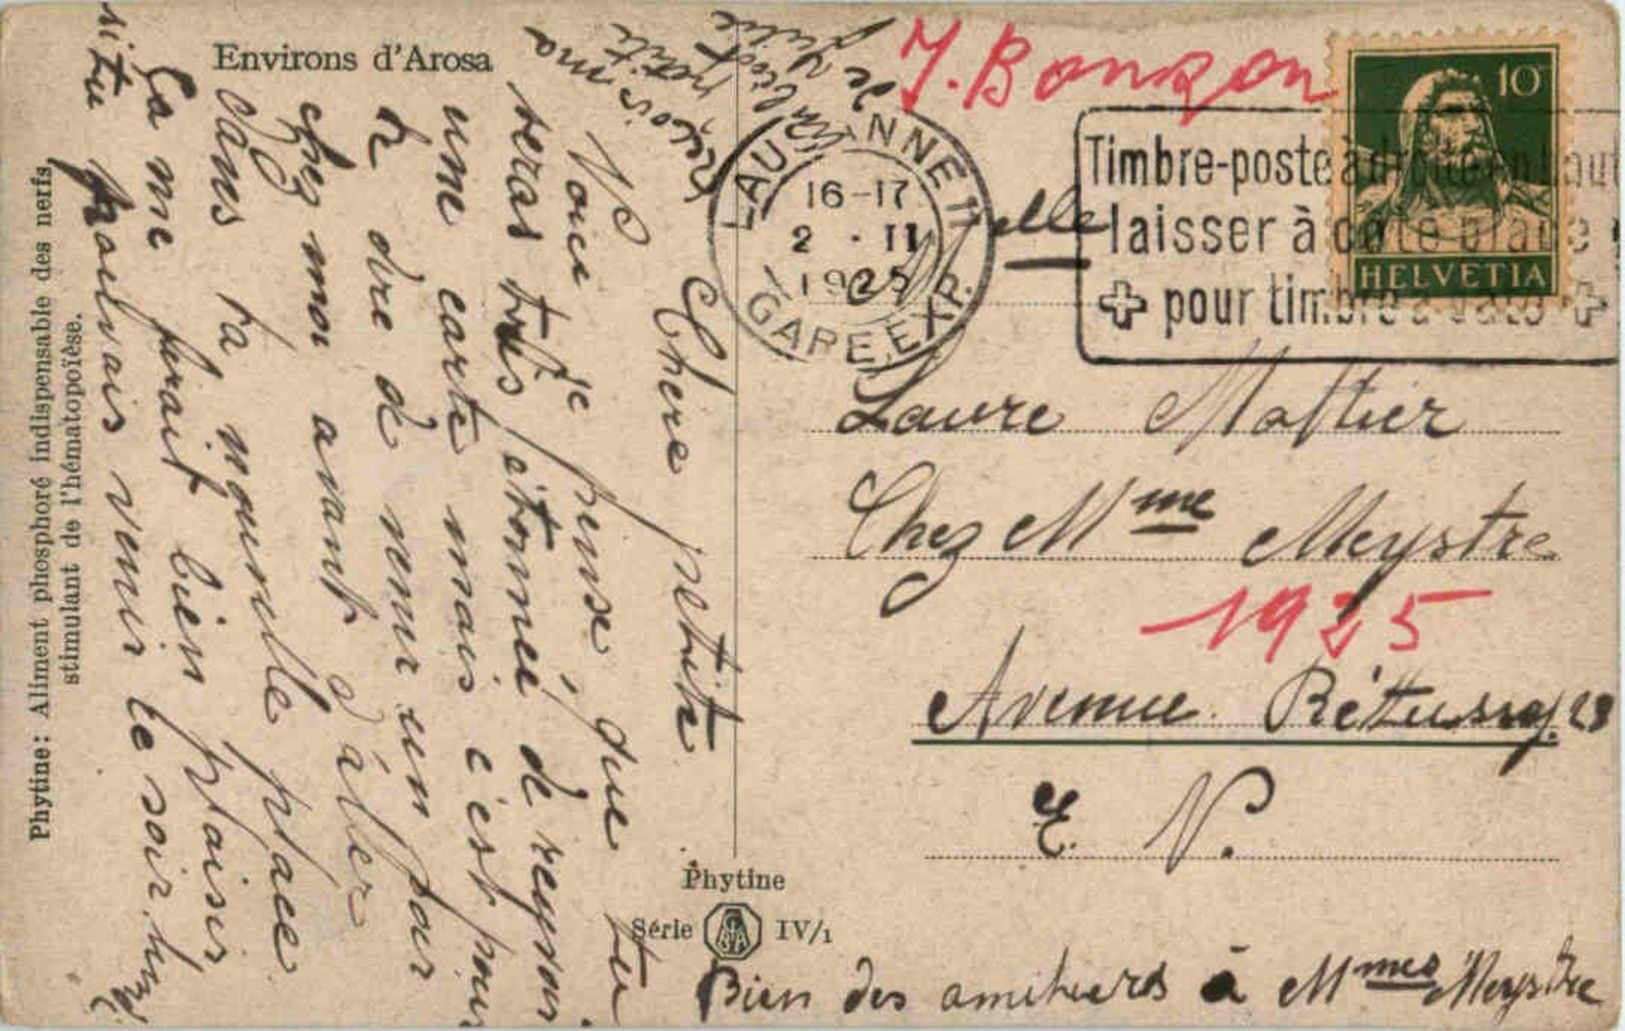 Environs d'Arosa
Phytine: Aliment phosphoré indispensable des nerfs
stimulant de l'hématopoïèse.
Chere petite
Voici je pense que tu
seras très étonnée de reçevoir
une carte mais c'est pour
te dire de venir un jour
chez moi avant d'aller
dans ta nouvelle place
Ça me ferait bien plaisir
si tu pouvais venir le soir lundi
Phytine
Série IV/1
J. Bonzon
LAUSANNE 11
16-17
2 · II
1925
GARE EXP.
Timbre-poste à droite en haut
laisser à côté place
pour timbre à date
10
HELVETIA
Melle
Laure Mottier
Chez Mme Meystre
1925
Avenue Béthusy. 23
E. V.
Bien des amitiers à Mmes Meystre